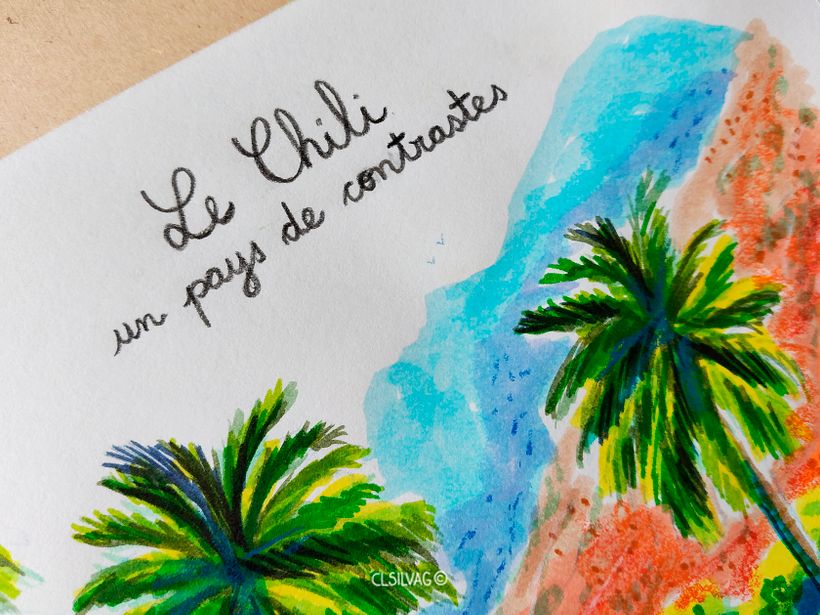 Le Chili
un pays de contrastes
CLSILVAG©